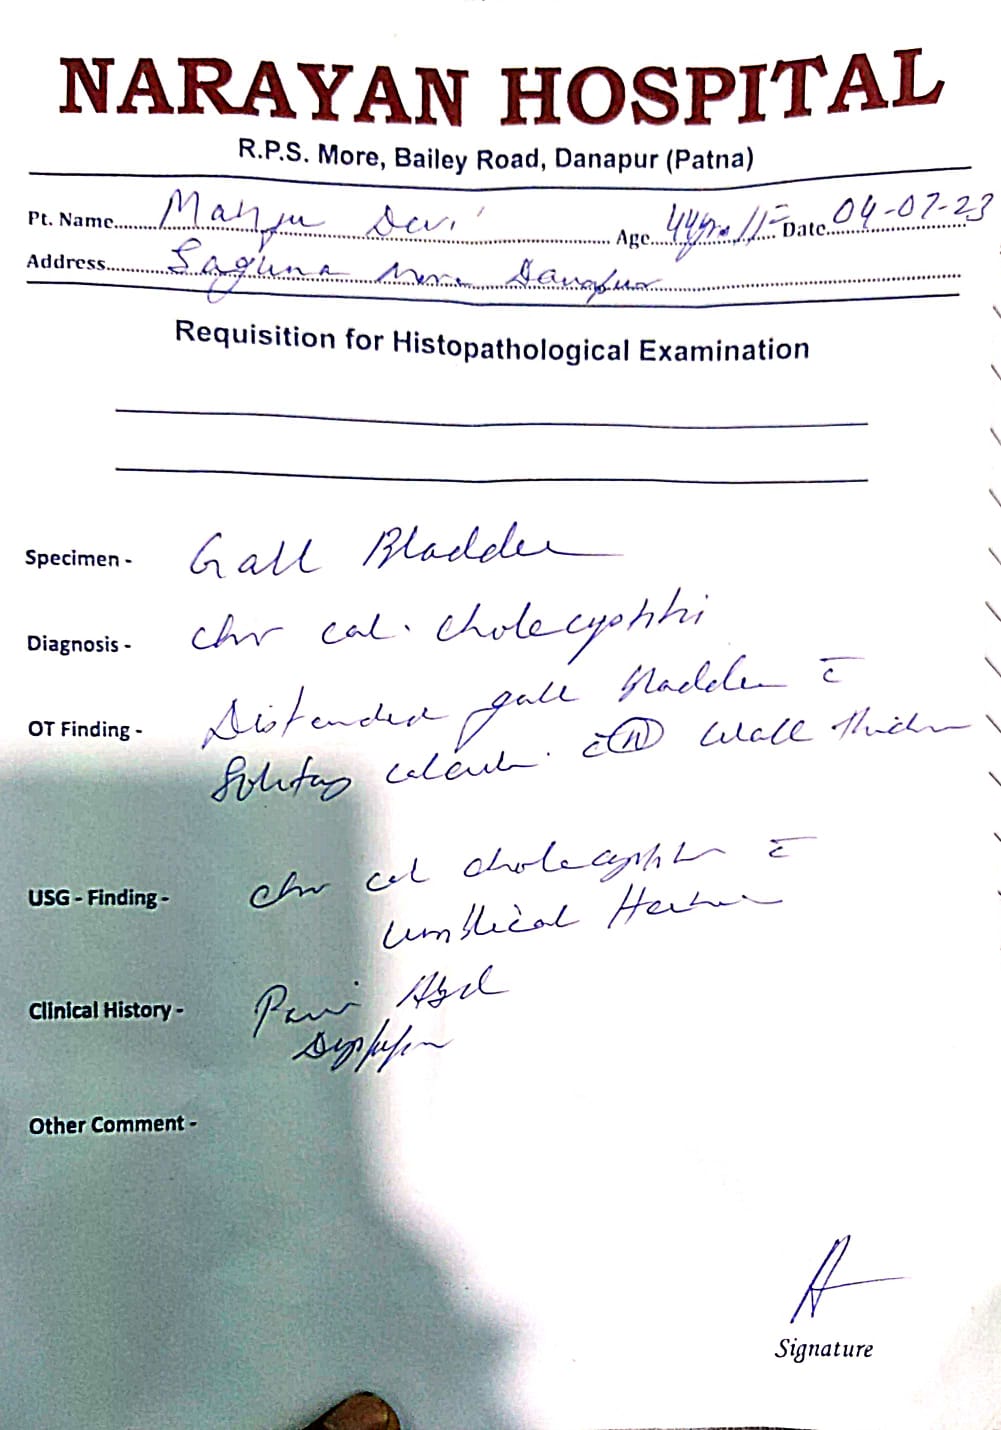 NARAYAN HOSPITAL
R.P.S. More, Bailey Road, Danapur (Patna)
Pt. Name........ Manju Devi ........ Age.... 44yrs. .... Date.... 04-07-23
Address........ Saguna More Danapur
Requisition for Histopathological Examination
Specimen - Gall Bladder
Diagnosis - chr cal. cholecystitis
OT Finding - Distended gall bladder c̄
Solitary calculi. c̄ (N) wall thickn
USG - Finding - chr cal cholecystitis c̄
umblical Hernia
Clinical History - Pain Abd
Other Comment -
Signature